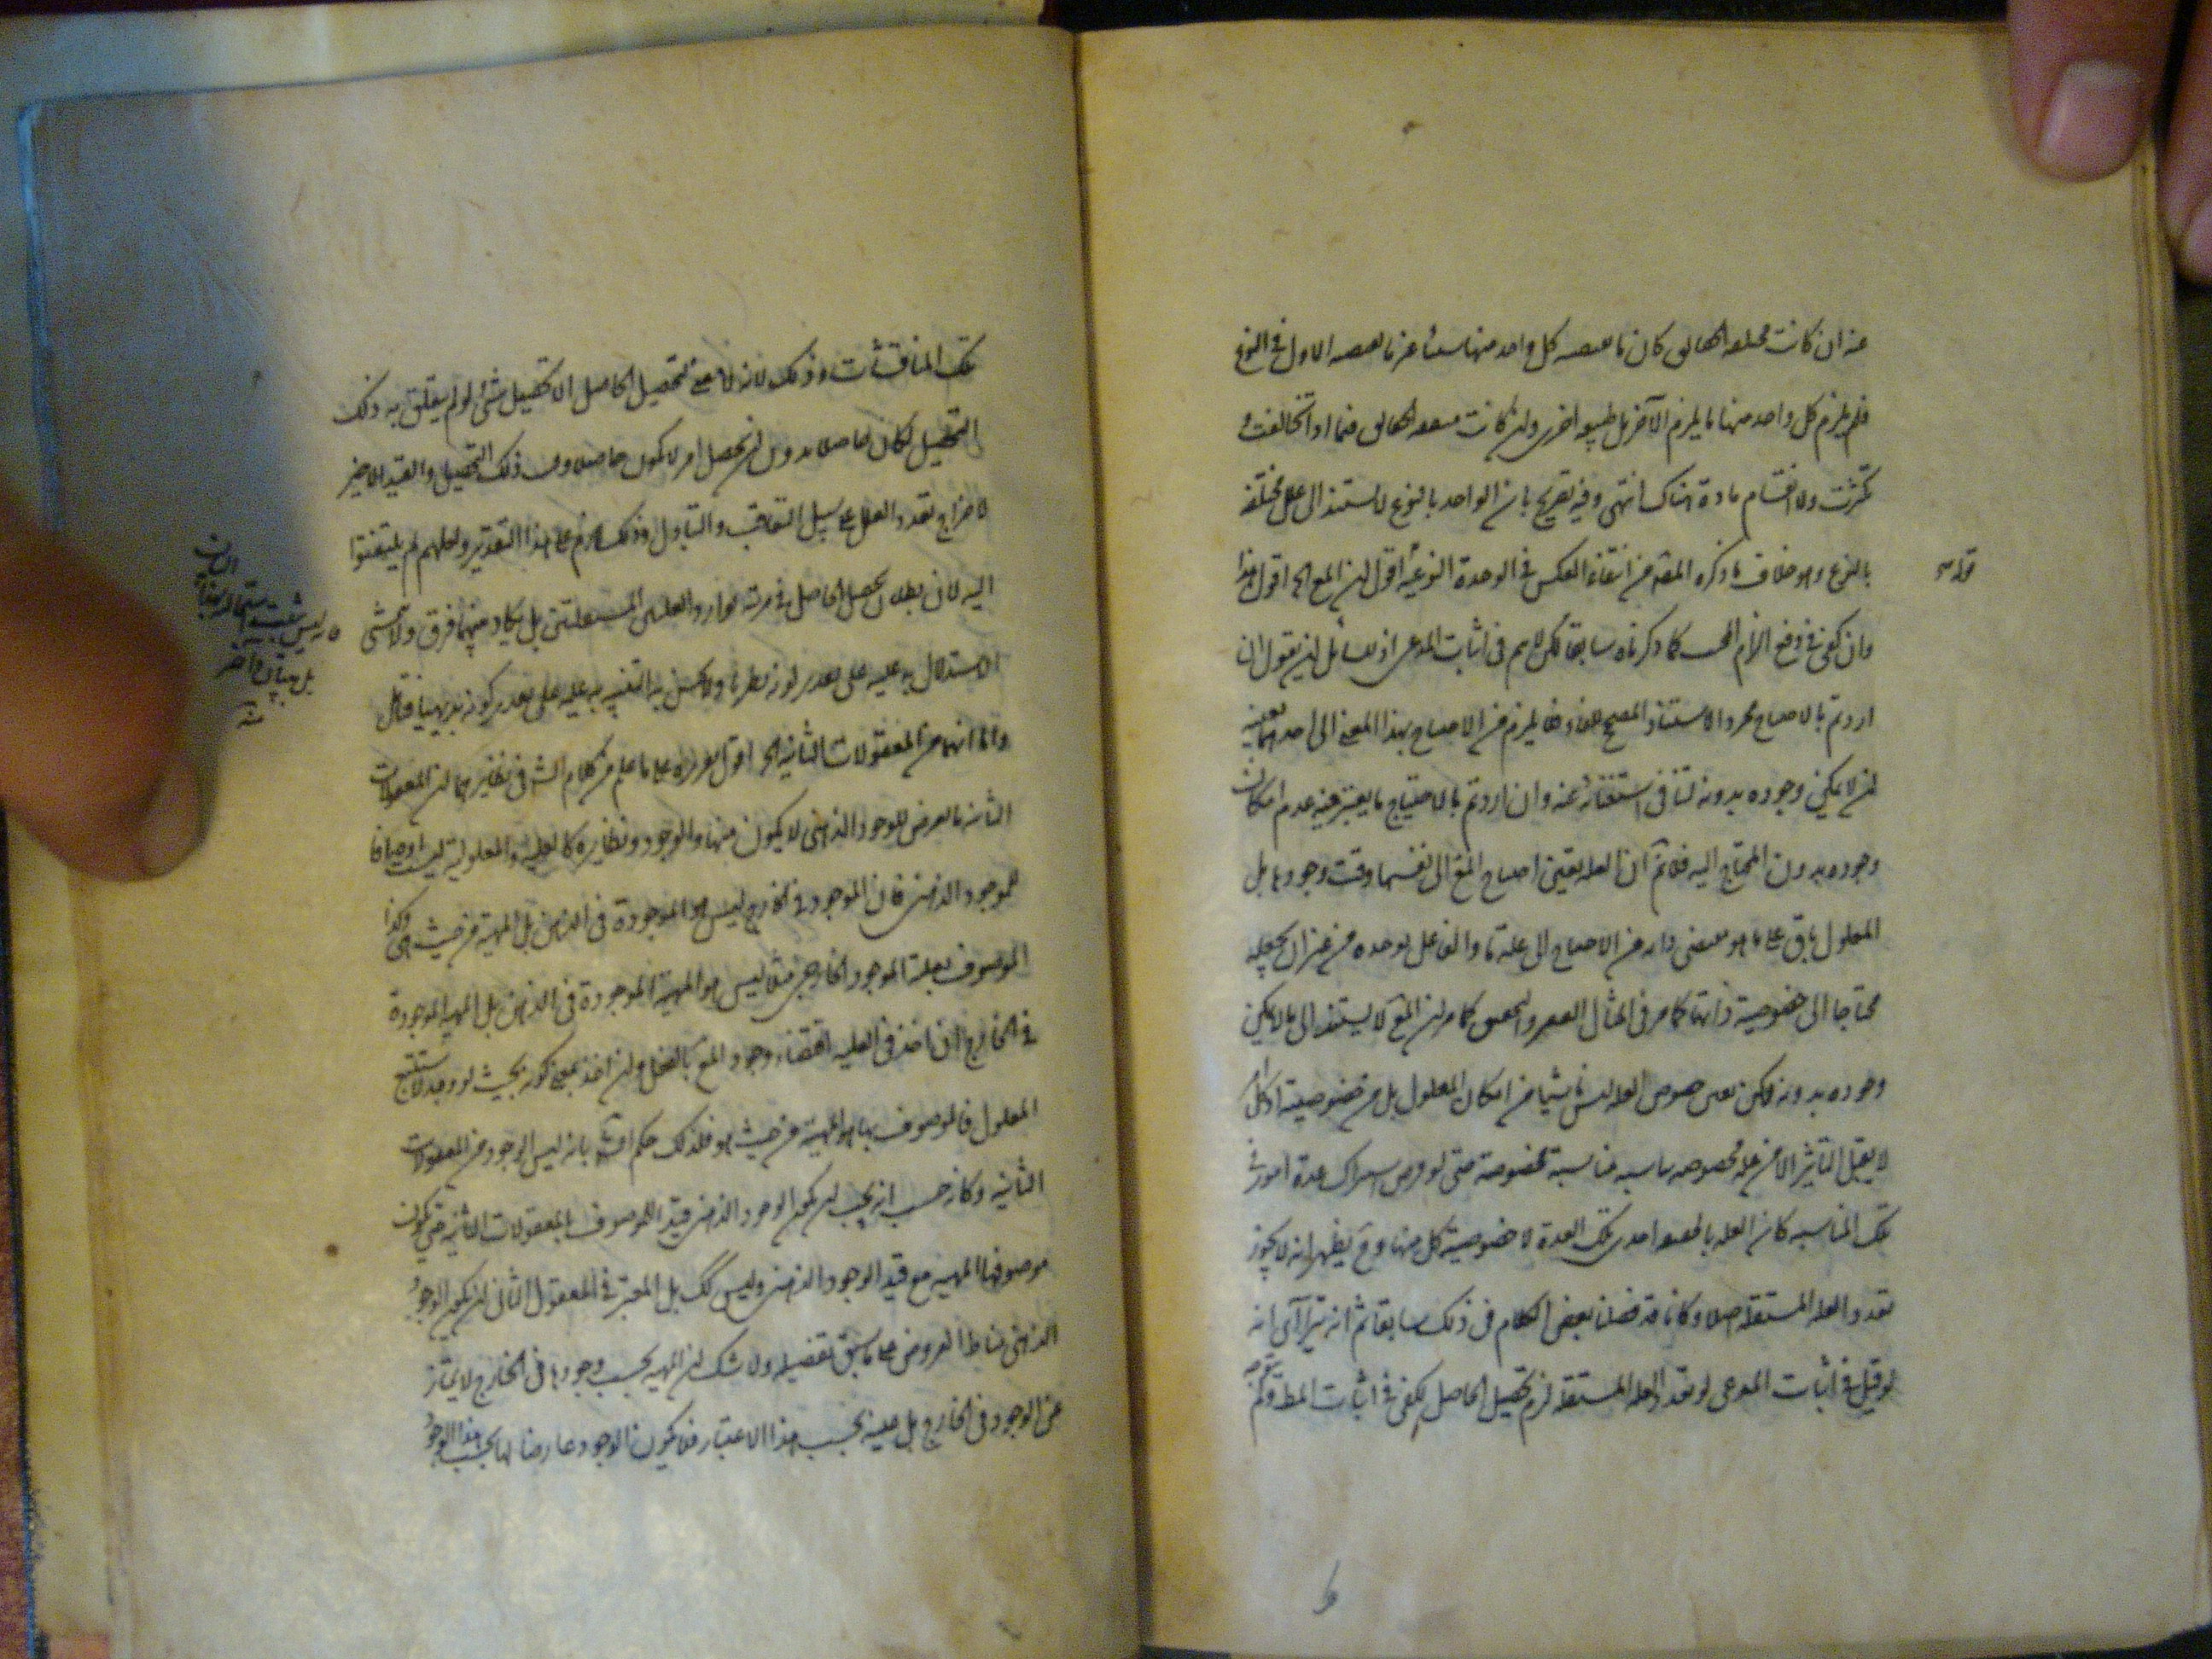 عنه ان كانت مختلفه الحقايق كان ما يقتضيه كل واحد منها شيئا غير ما يقتضيه الاول في النوع
فلم يلزم كل واحد منها ما يلزم الآخر بل طبيعه اخرى وان كانت متفقه الحقايق فبماذا تخالفت و
تكثرت ولا انقسام مادة هناك انتهى وفيه تصريح بان الواحد بالنوع لا يستند الى علل مختلفه
بالنوع وهو خلاف ما ذكره المصنف من انتفاء العكس في الوحدة النوعيه اقول ان المع الخ اقول هذا
قوله
وان كفى في دفع الزام الخصم كما ذكرناه سابقا لكن لا يتم في اثبات المدعى اذ للسائل ان يقول ان
اردتم بالاحتياج مجرد الاستناد المصحح للفاء فما يلزم من الاحتياج بهذا المعنى الى احدهما بعينه
ان لا يمكن وجوده بدونه لتنافي استغنائه عنه وان اردتم بالاحتياج ما يعتبر فيه عدم امكان
وجوده بدون المحتاج اليه فلا نم ان العله يقتضى احتياج المع الى نفسها وقت وجودها بل
المعلول باق على ما هو مقتضى ذاته من الاحتياج الى علة ما والفاعل يوجده من غير ان يجعله
محتاجا الى خصوصية ذاتها كما مر في المثال
وجوده بدونه لكن تعين خصوص العله ليس ناشيا من امكان المعلول بل من خصوصيته اذ كل
لا يقبل التاثير الا من علة مخصوصه يناسبه مناسبة مخصوصة حتى لو فرض اشتراك عدة امور في
تلك المناسبه كان العله بالحقيقه احدى تلك العدة لا خصوصية كل منها وح يظهر انه لا يجوز
تعدد العله المستقله اصلا وكنا قد فصلنا بعض الكلام في ذلك سابقا ثم انه يترآى انه
لو قيل في اثبات المدعى لو تعدد العله المستقله لزم تحصيل الحاصل لكفى في اثبات المط
تلك المناقشات وذلك لانه لا معنى لتحصيل الحاصل الا تحصيل شئ لو لم يتعلق به ذلك
التحصيل لكان حاصلا بدون ان يحصل امر لا يكون حاصلا دون ذلك التحصيل والقيد الاخير
لاخراج تعدد العلل على سبيل التعاقب والتبادل وذلك لازم على هذا التقدير ولعلهم لم يلتفتوا
اليه لان بطلان تحصيل الحاصل في مرتبه توارد العلتين المستقلتين بل يكاد بينهما فرق ولا يتمشى
الاستدلال به عليه على تقدير كونه نظريا ولا يحسن به التنبيه به عليه على تقدير كونه بديهيا فتأمل
واما انهما من المعقولات الثانيه الخ اقول تقريره على ما علم من كلام الش في نظيرهما ان المعقولات
الثانيه ما يعرض للوجود الذهني لا يكون منها والوجود ونظايره كالعلية والمعلولية ليست اوصافا
للموجود الذهني فان الموجود في الخارج ليس هو الموجودة في الذهن بل المهية من حيث هي وكذا
الموصوف بعلية الموجود الخارجي مثلا ليس هو المهية الموجودة في الذهن بل المهية الموجودة
في الخارج ان اخذ في العليه اقتضاء وجود المع بالفعل وان اخذ بمعنى كونه بحيث لو وجد لاستتبع
المعلول فالموصوف بها هو المهية من حيث هو فلذلك حكم الش بانه ليس الوجود من المعقولات
الثانيه وكانه حسب انه يجب ان يكون الوجود الذهني قيدا للموصوف بالمعقولات الثانيه حتى يكون
موصوفها المهيه مع قيد الوجود الذهني وليس كك بل المعتبر في المعقول الثاني ان يكون الوجود
الذهني مناط العروض على ما سبق تفصيله ولا شك ان المهيه بحسب وجودها في الخارج لا يمتاز
عن الوجود في الخارج بل عينه بحسب هذا الاعتبار فلا يكون الوجود عارضا لها بحسب هذا الوجود